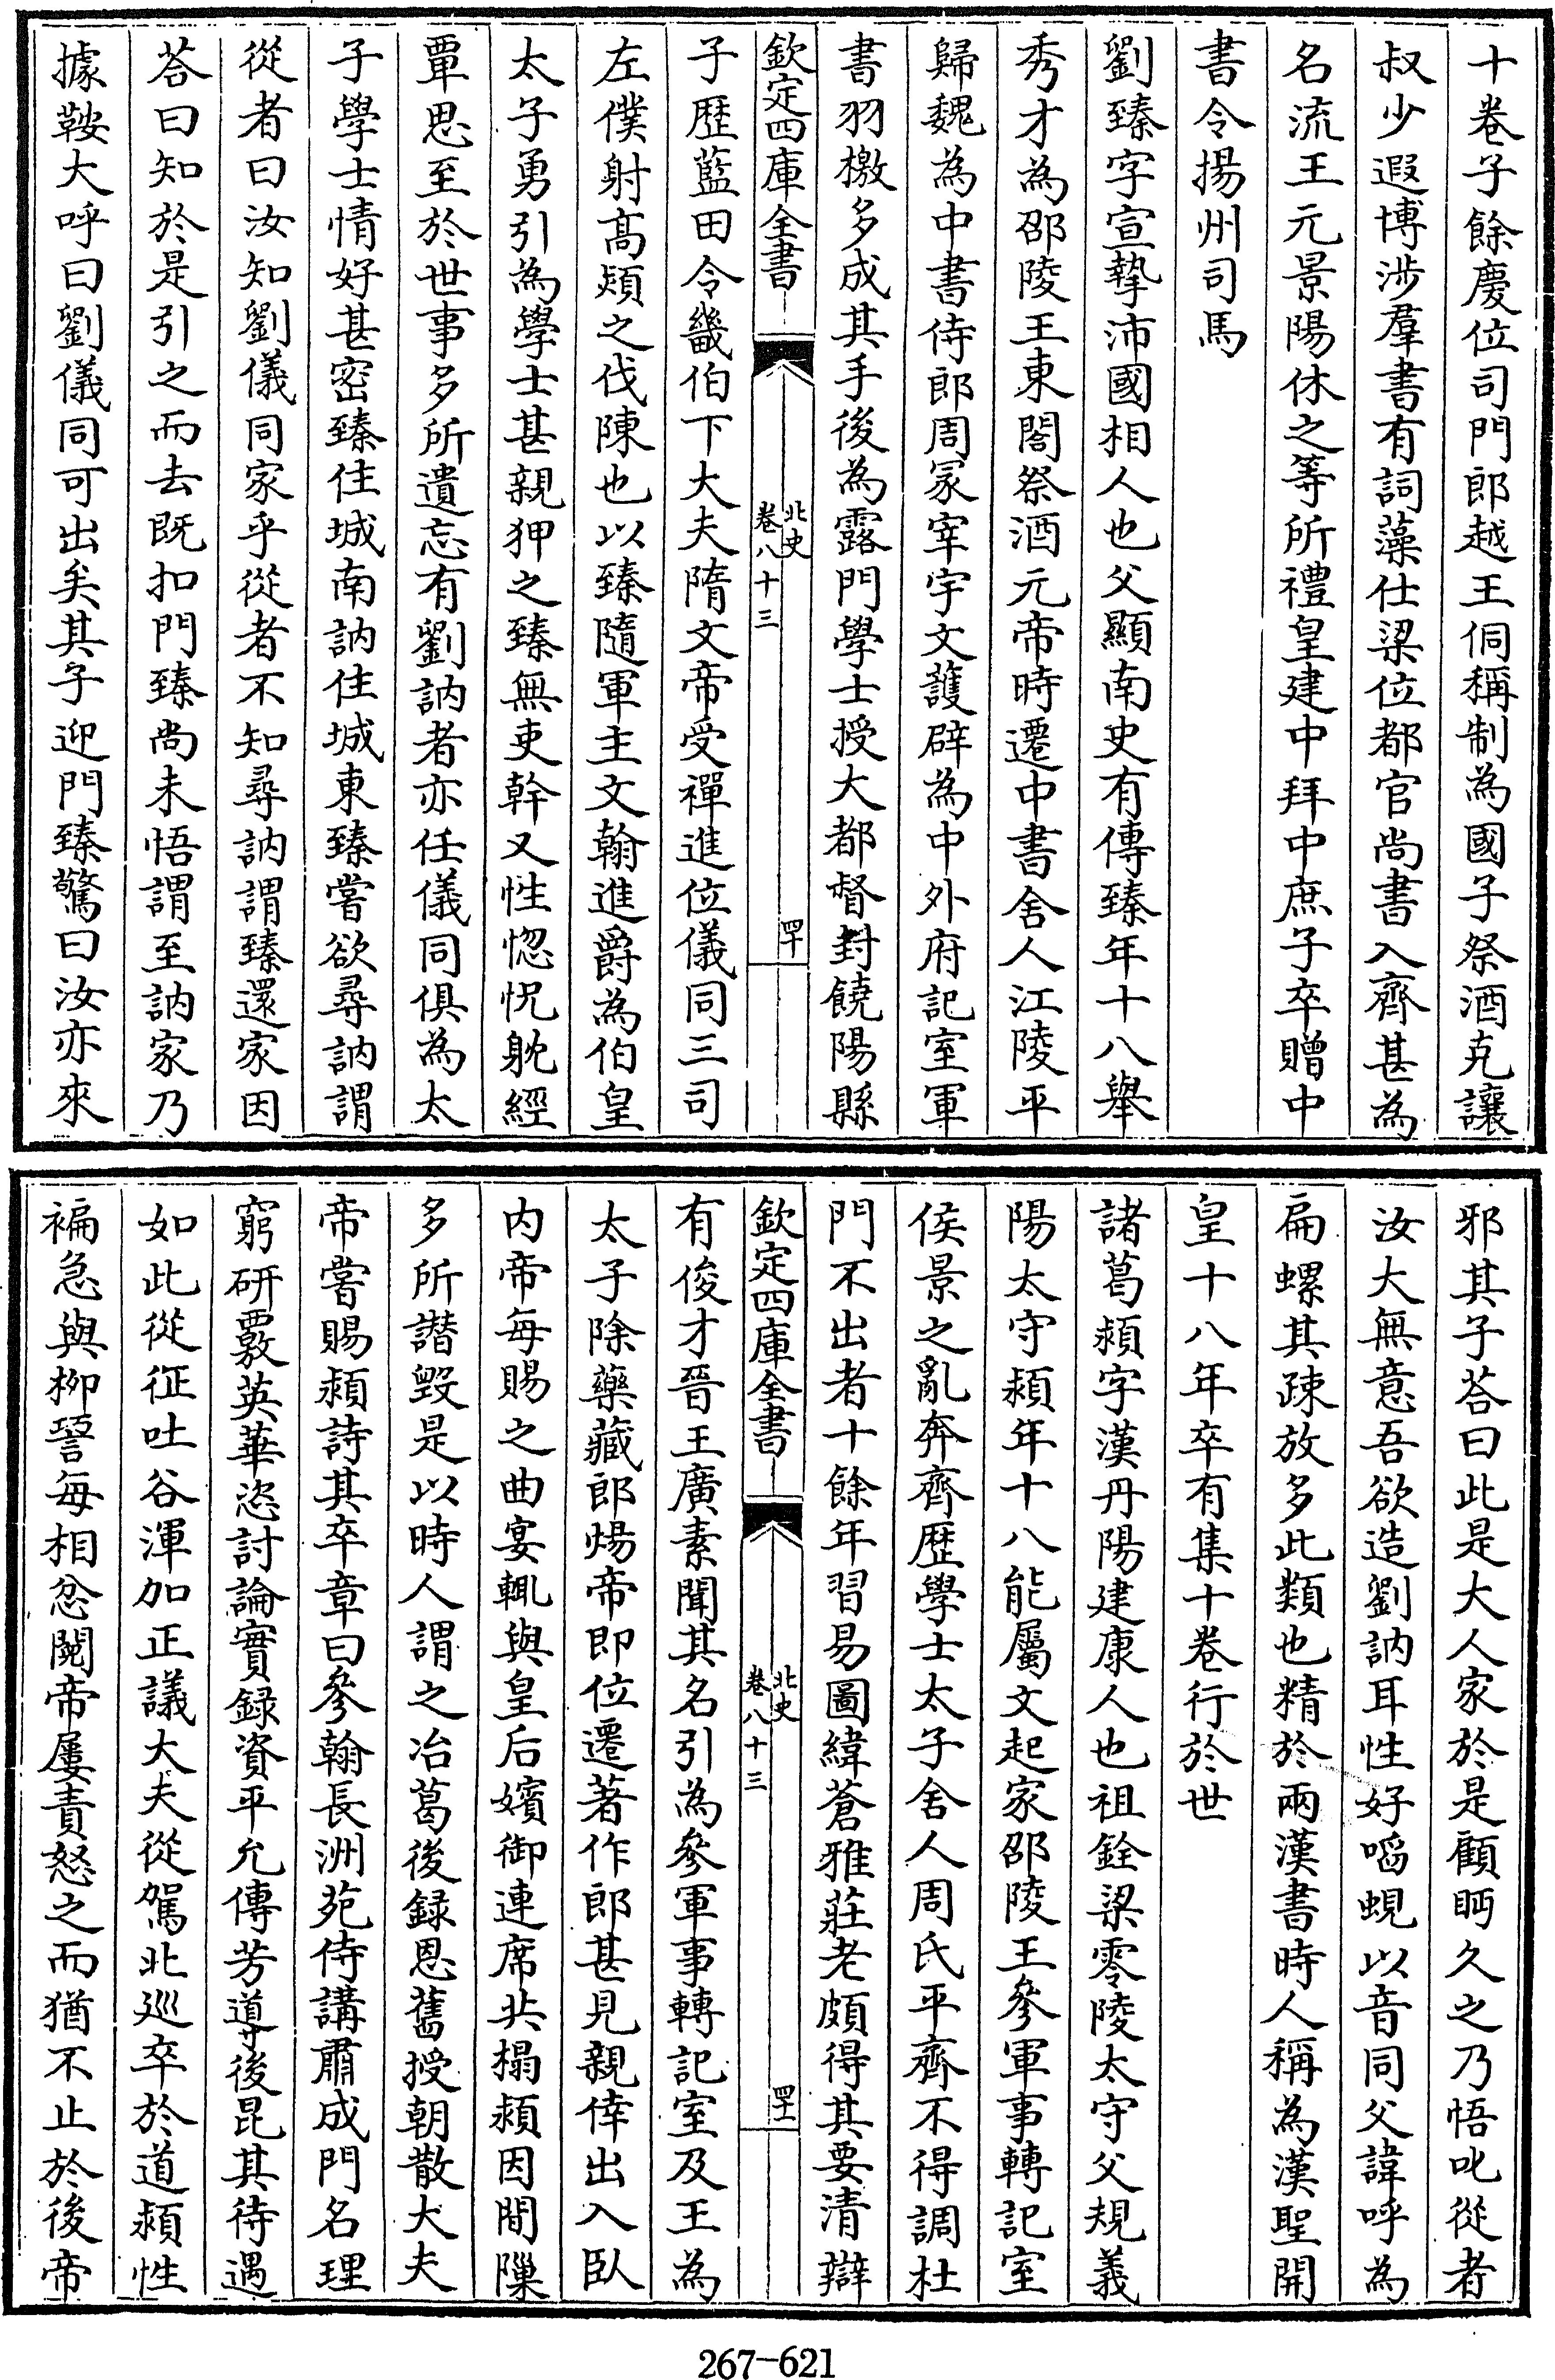 十卷子餘慶位司門郎越王侗稱制為國子祭酒克讓
叔少遐博涉羣書有詞藻仕梁位都官尚書入齊甚為
名流王元景陽休之等所禮皇建中拜中庶子卒贈中
書令揚州司馬
劉臻字宣摯沛國相人也父顯南史有傳臻年十八舉
秀才為邵陵王東閤祭酒元帝時遷中書舍人江陵平
歸魏為中書侍郎周冢宰宇文護辟為中外府記室軍
書羽檄多成其手後為露門學士授大都督封饒陽縣
欽定四庫全書
北史
卷八十三
四十
子歷藍田令畿伯下大夫隋文帝受禪進位儀同三司
左僕射高熲之伐陳也以臻隨軍主文翰進爵為伯皇
太子勇引為學士甚親狎之臻無吏幹又性惚怳躭經
覃思至於世事多所遺忘有劉訥者亦任儀同俱為太
子學士情好甚密臻住城南訥住城東臻嘗欲尋訥謂
從者曰汝知劉儀同家乎從者不知尋訥謂臻還家因
荅曰知於是引之而去既扣門臻尚未悟謂至訥家乃
據鞍大呼曰劉儀同可出矣其子迎門臻驚曰汝亦來
邪其子荅曰此是大人家於是顧眄久之乃悟叱從者
汝大無意吾欲造劉訥耳性好啗蜆以音同父諱呼為
扁螺其疎放多此類也精於兩漢書時人稱為漢聖開
皇十八年卒有集十卷行於世
諸葛潁字漢丹陽建康人也祖銓梁零陵太守父規義
陽太守潁年十八能屬文起家邵陵王參軍事轉記室
侯景之亂奔齊歷學士太子舍人周氏平齊不得調杜
門不出者十餘年習易圖緯蒼雅莊老頗得其要清辯
欽定四庫全書
北史
卷八十三
四十一
有俊才晉王廣素聞其名引為參軍事轉記室及王為
太子除藥藏郎煬帝即位遷著作郎甚見親倖出入臥
内帝每賜之曲宴輒與皇后嬪御連席共榻潁因間隟
多所譖毀是以時人謂之冶葛後録恩舊授朝散大夫
帝嘗賜潁詩其卒章曰參翰長洲苑侍講肅成門名理
窮研覈英華恣討論實録資平允傳芳導後昆其待遇
如此從征吐谷渾加正議大夫從駕北巡卒於道潁性
褊急與柳䛒每相忿鬩帝屢責怒之而猶不止於後帝
267-621